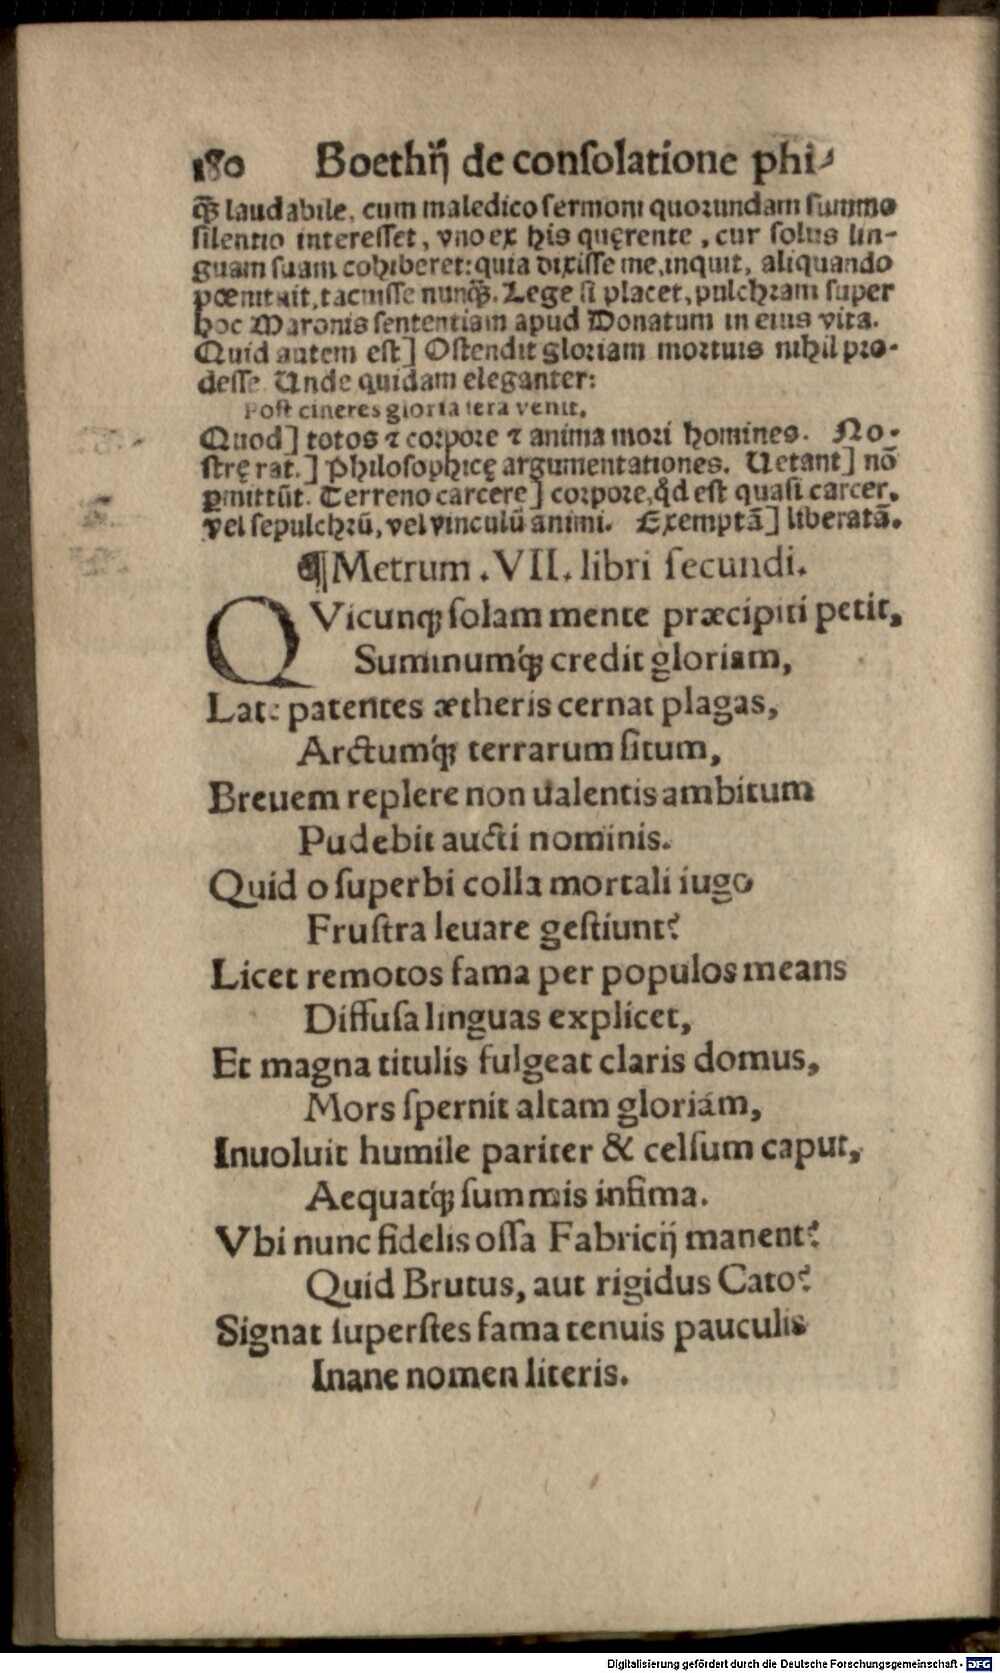 180 Boethij de conſolatione phi⸗
q̃ꝫ laudabile, cum maledico ſermoni quorundam ſummo
ſilentio intereſſet, vno ex his quęrente, cur ſolus lin-
guam ſuam cohiberet: quia dixiſſe me, inquit, aliquando
pœnituit, tacuiſſe nunq̃ꝫ. Lege ſi placet, pulchram ſuper
hoc Maronis ſententiam apud Donatum in eius vita.
Quid autem eſt] Oſtendit gloriam mortuis nihil pro-
deſſe. Unde quidam eleganter:
Poſt cineres gloria ſera venit.
Quod] totos ⁊ corpore ⁊ anima mori homines. No-
ſtrę rat.] Philoſophicę argumentationes. Uetant] nō
ꝑmittūt. Terreno carcere] corpore, qd́ eſt quaſi carcer,
vel ſepulchrū, vel vinculū animi. Exemptā] liberatā.
¶Metrum .VII. libri ſecundi.
QVicunqꝫ ſolam mente præcipiti petit,
Summumq́ꝫ credit gloriam,
Late patentes ætheris cernat plagas,
Arctumq́ꝫ terrarum ſitum,
Breuem replere non ualentis ambitum
Pudebit aucti nominis.
Quid o ſuperbi colla mortali iugo
Fruſtra leuare geſtiunt?
Licet remotos fama per populos means
Diffuſa linguas explicet,
Et magna titulis fulgeat claris domus,
Mors ſpernit altam gloriam,
Inuoluit humile pariter & celſum caput,
Aequatq́ꝫ ſummis infima.
Vbi nunc fidelis oſſa Fabricij manent?
Quid Brutus, aut rigidus Cato?
Signat ſuperſtes fama tenuis pauculis
Inane nomen literis.
Digitalisierung gefördert durch die Deutsche Forschungsgemeinschaft - DFG